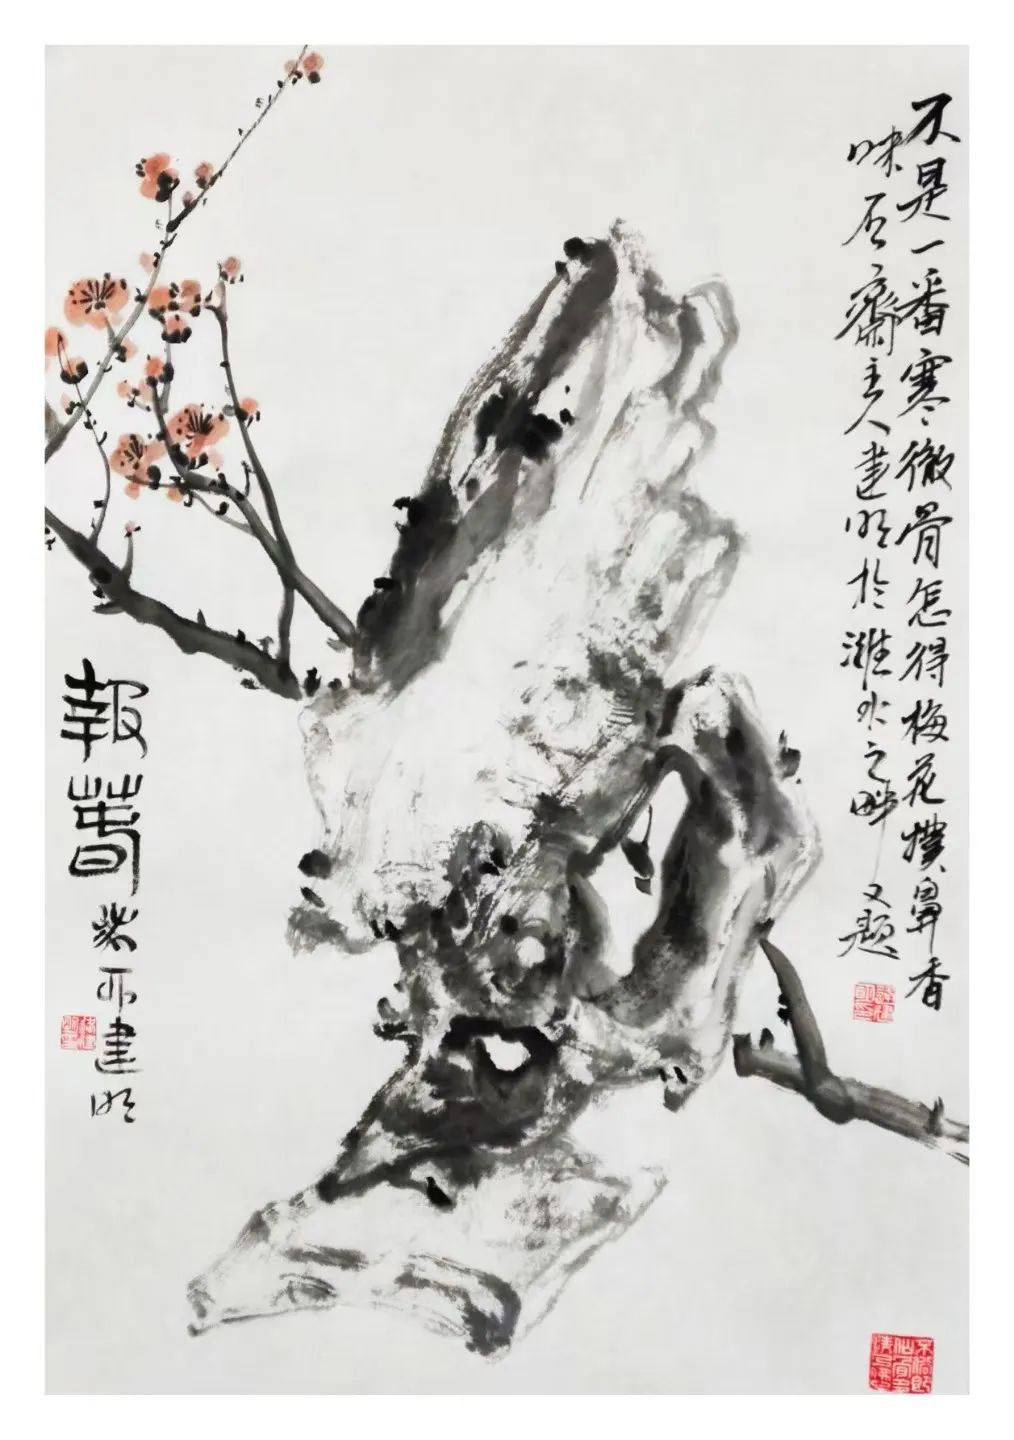 不是一番寒徹骨怎得梅花撲鼻香
味石齋主人建明於濰水之畔又題
報春
建明